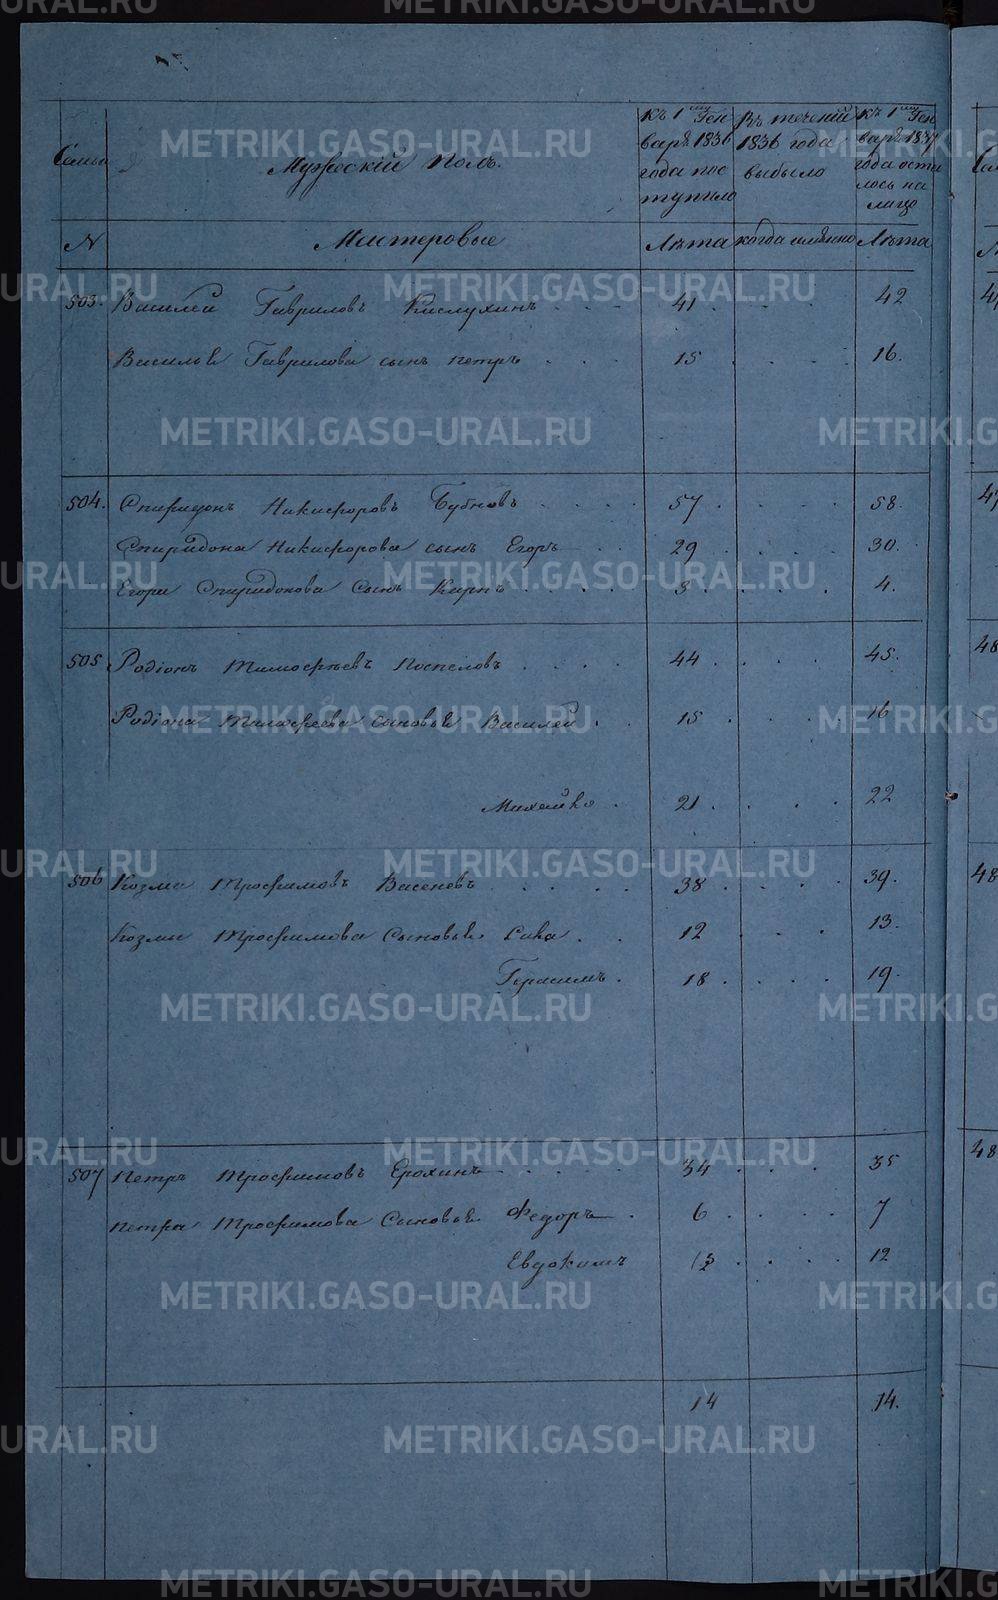 Семьи Мужеский полъ. Къ 1му Генваря 1836 года поступило Въ течении 1836 года выбыло Къ 1му Генваря 1837 года осталось на лицо
N Мастеровые Лѣта когда имянно Лѣта
503. Василей Гавриловъ Кислухинъ 41 42
Василья Гаврилова сынъ Петръ 15 16.
504. Спиридонъ Никифоровъ Бубновъ 57 58.
Спиридона Никифорова сынъ Егоръ 29 30.
Егора Спиридонова Сынъ Карпъ 3 4.
505 Родіонъ Тимофѣевъ Поспеловъ 44 45.
Родіона Тимофеева сыновья Василей 15 16
Михайло 21 22
506 Козма Трофимовъ Васеневъ 38 39.
Козмы Трофимова Сыновья Сава 12 13.
Герасимъ 18 19.
507 Петръ Трофимовъ Ерохинъ 34 35
Петра Трофимова Сыновья Федоръ 6 7
Евдокимъ 12
14 14.
METRIKI.GASO-URAL.RU